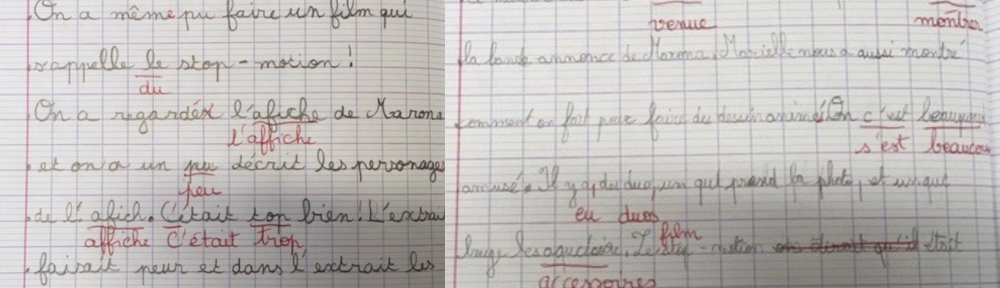 On a même pu faire un film qui
s'appelle le stop-motion!
du
On a regardéx l'afiche de Marona
l'affiche
et on a un peu décrit les personages
peu
de l'afich. C'était trop bien! L'extrai
affiche C'était trop
faisait peur et dans l'extrait les
venue montrer
la bande annonce de Marona. Marielle nous a aussi montré
comment on fait pour faire du dessin animé. On c'est beaucou
s'est beaucou
amusé. Il y a, du duo, un qui prend la photo, et un qui
eu duos
film
bouge les Le stop-motion était
accessoires